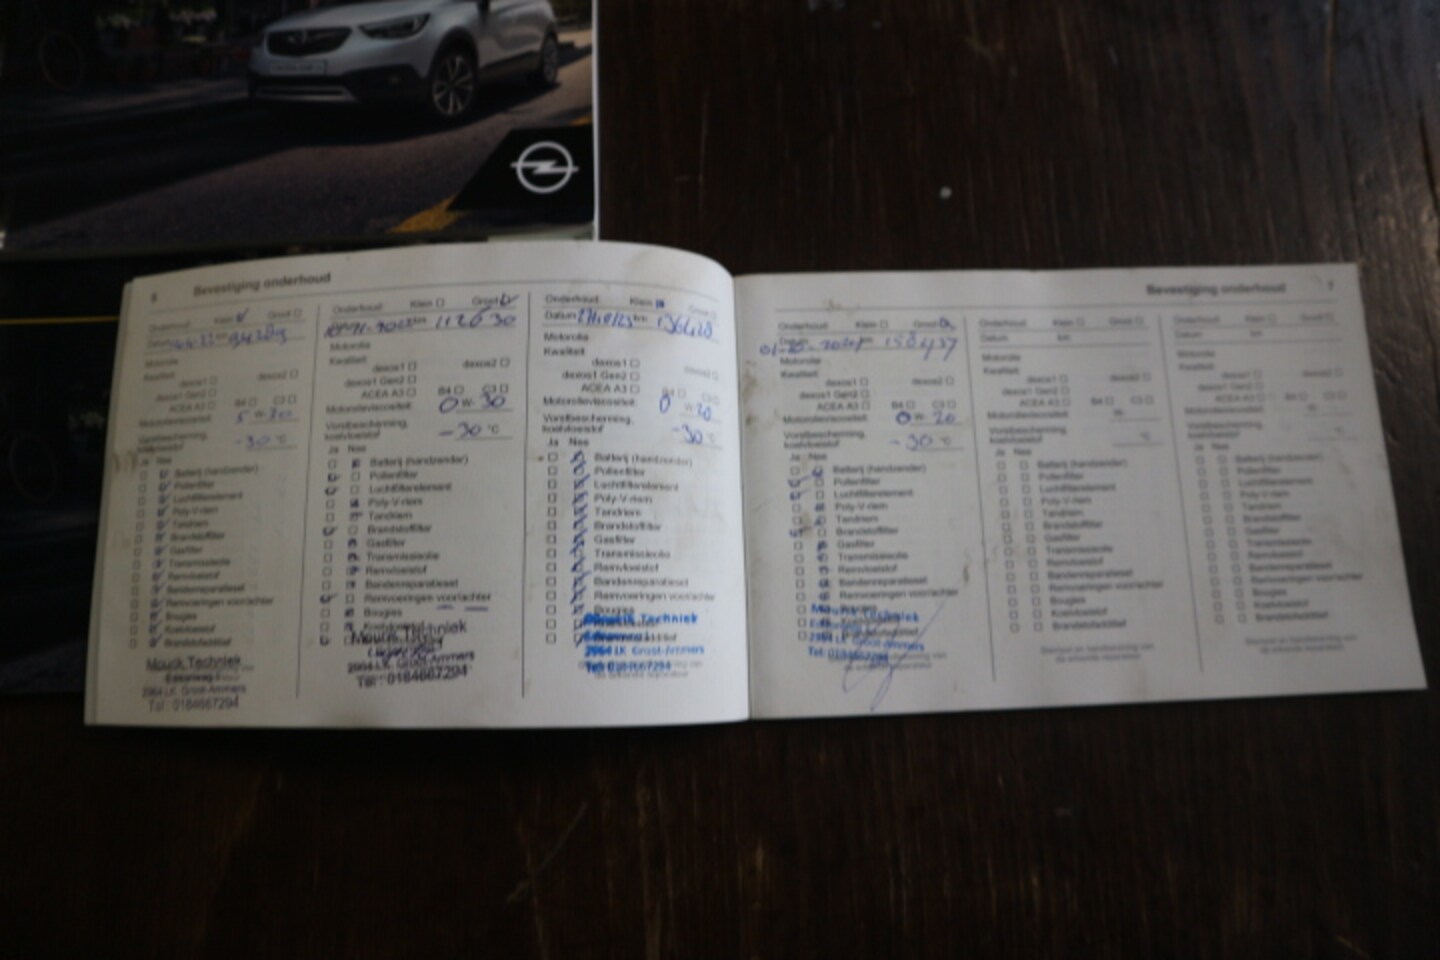 Bevestiging onderhoud
Onderhoud: Klein Groot
Datum
Motorolie
Kwaliteit:
dexos1 dexos2
dexos1 Gen2
ACEA A3 B4 C3
Motorolieviscositeit: 5 W-30
Vorstbescherming,
koelvloeistof -30 °C
Ja Nee
Batterij (handzender)
Pollenfilter
Luchtfilterelement
Poly-V-riem
Tandriem
Brandstoffilter
Gasfilter
Transmissieolie
Remvloeistof
Bandenreparatieset
Remvoeringen voor/achter
Bougies
Koelvloeistof
Brandstofadditief
Mourik Techniek
2964 LK Groot-Ammers
Tel : 0184667294
Onderhoud: Klein Groot
112630
Motorolie
Kwaliteit:
dexos1 dexos2
dexos1 Gen2
ACEA A3 B4 C3
Motorolieviscositeit: 0 W- 30
Vorstbescherming,
koelvloeistof -30 °C
Ja Nee
Batterij (handzender)
Pollenfilter
Luchtfilterelement
Poly-V-riem
Tandriem
Brandstoffilter
Gasfilter
Transmissieolie
Remvloeistof
Bandenreparatieset
Remvoeringen voor/achter
Bougies
Mourik Techniek
2964 LK Groot-Ammers
Tel : 0184667294
Onderhoud: Klein Groot
Datum km
Motorolie
Kwaliteit:
dexos1 dexos2
dexos1 Gen2
ACEA A3 B4 C3
Motorolieviscositeit: 0 W 20
Vorstbescherming,
koelvloeistof -30 °C
Ja Nee
Batterij (handzender)
Pollenfilter
Luchtfilterelement
Poly-V-riem
Tandriem
Brandstoffilter
Gasfilter
Transmissieolie
Remvloeistof
Bandenreparatieset
Remvoeringen voor/achter
Bougies
Mourik Techniek
2964 LK Groot-Ammers
Tel: 0184667294
Bevestiging onderhoud 7
Onderhoud: Klein Groot
Datum 158437
Motorolie
Kwaliteit:
dexos1 dexos2
dexos1 Gen2
ACEA A3 B4 C3
Motorolieviscositeit: 0 W 20
Vorstbescherming,
koelvloeistof -30 °C
Ja Nee
Batterij (handzender)
Pollenfilter
Luchtfilterelement
Poly-V-riem
Tandriem
Brandstoffilter
Gasfilter
Transmissieolie
Remvloeistof
Bandenreparatieset
Remvoeringen voor/achter
Mourik Techniek
2964 LK Groot-Ammers
Tel: 0184667294
Onderhoud: Klein Groot
Datum km
Motorolie
Kwaliteit:
dexos1 dexos2
dexos1 Gen2
ACEA A3 B4 C3
Motorolieviscositeit: W-
Vorstbescherming,
koelvloeistof °C
Ja Nee
Batterij (handzender)
Pollenfilter
Luchtfilterelement
Poly-V-riem
Tandriem
Brandstoffilter
Gasfilter
Transmissieolie
Remvloeistof
Bandenreparatieset
Remvoeringen voor/achter
Bougies
Koelvloeistof
Brandstofadditief
Stempel en handtekening van
de erkende reparateur
Onderhoud: Klein Groot
Datum km
Motorolie
Kwaliteit:
dexos1 dexos2
dexos1 Gen2
ACEA A3 B4 C3
Motorolieviscositeit: W-
Vorstbescherming,
koelvloeistof °C
Ja Nee
Batterij (handzender)
Pollenfilter
Luchtfilterelement
Poly-V-riem
Tandriem
Brandstoffilter
Gasfilter
Transmissieolie
Remvloeistof
Bandenreparatieset
Remvoeringen voor/achter
Bougies
Koelvloeistof
Brandstofadditief
Stempel en handtekening van
de erkende reparateur